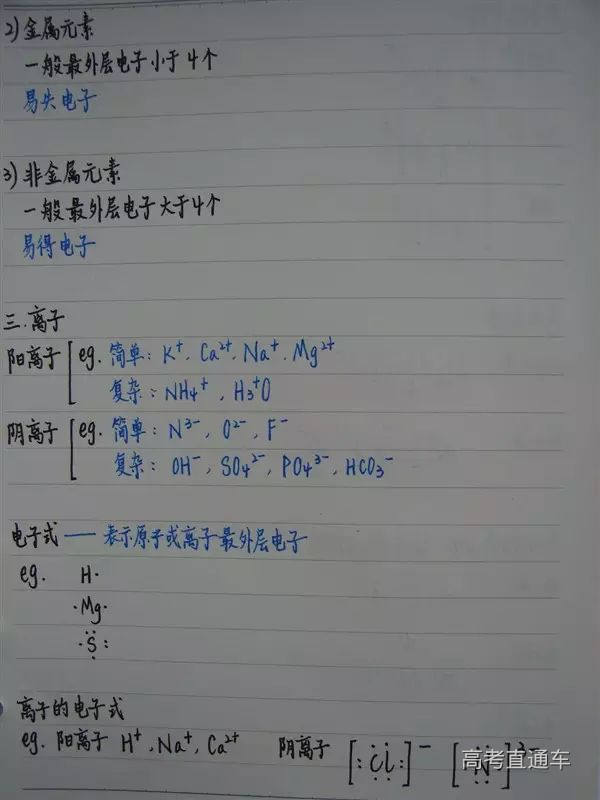 2) 金属元素
一般最外层电子小于4个
易失电子
3) 非金属元素
一般最外层电子大于4个
易得电子
三.离子
阳离子 eg. 简单: K⁺, Ca²⁺, Na⁺, Mg²⁺
复杂: NH₄⁺, H₃⁺O
阴离子 eg. 简单: N³⁻, O²⁻, F⁻
复杂: OH⁻, SO₄²⁻, PO₄³⁻, HCO₃⁻
电子式 —— 表示原子或离子最外层电子
eg. H·
·Mg·
·S:
离子的电子式
eg. 阳离子 H⁺, Na⁺, Ca²⁺ 阴离子 [:Cl:]⁻ [N]³⁻
高考直通车